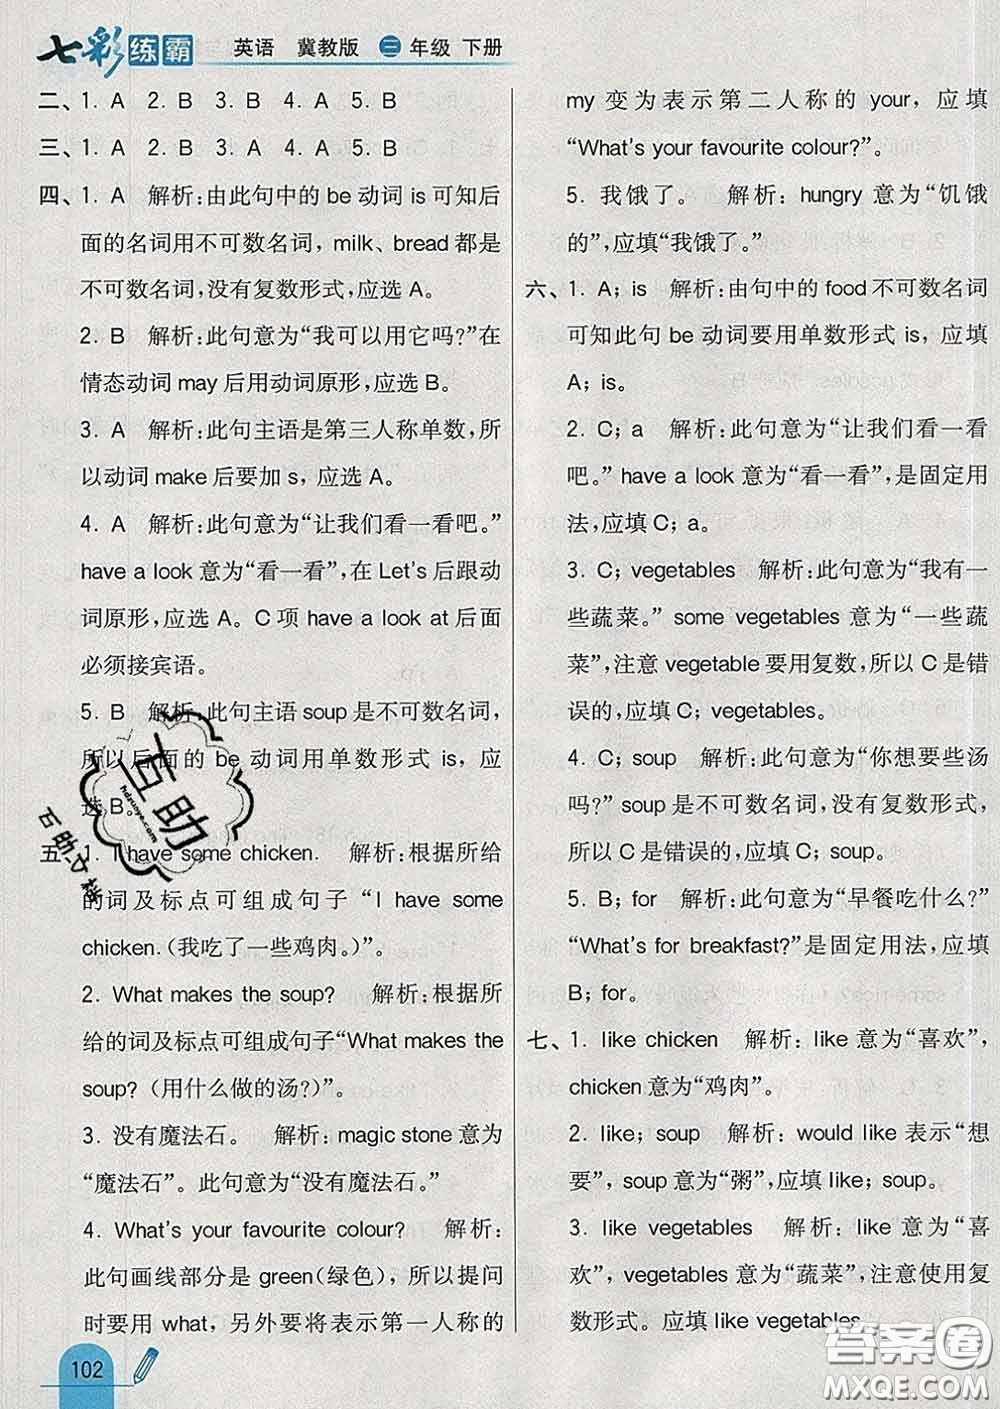 七彩练霸 英语 冀教版 三年级 下册
二、1. A 2. B 3. B 4. A 5. B
三、1. A 2. B 3. A 4. A 5. B
四、1. A 解析：由此句中的 be 动词 is 可知后
面的名词用不可数名词，milk、bread 都是
不可数名词，没有复数形式，应选 A。
2. B 解析：此句意为“我可以用它吗？”在
情态动词 may 后用动词原形，应选 B。
3. A 解析：此句主语是第三人称单数，所
以动词 make 后要加 s，应选 A。
4. A 解析：此句意为“让我们看一看吧。”
have a look 意为“看一看”，在 Let's 后跟动
词原形，应选 A。C 项 have a look at 后面
必须接宾语。
5. B 解析：此句主语 soup 是不可数名词，
所以后面的 be 动词用单数形式 is，应
选 B。
五、1. I have some chicken. 解析：根据所给
的词及标点可组成句子“I have some
chicken.（我吃了一些鸡肉。）”。
2. What makes the soup? 解析：根据所
给的词及标点可组成句子“What makes the
soup?（用什么做的汤？）”
3. 没有魔法石。 解析：magic stone 意为
“魔法石”。此句意为“没有魔法石。”
4. What's your favourite colour? 解析：
此句画线部分是 green（绿色），所以提问
时要用 what，另外要将表示第一人称的
my 变为表示第二人称的 your，应填
“What's your favourite colour?”。
5. 我饿了。 解析：hungry 意为“饥饿
的”，应填“我饿了。”
六、1. A；is 解析：由句中的 food 不可数名词
可知此句 be 动词要用单数形式 is，应填
A；is。
2. C；a 解析：此句意为“让我们看一看
吧。”have a look 意为“看一看”，是固定用
法，应填 C；a。
3. C；vegetables 解析：此句意为“我有一
些蔬菜。”some vegetables 意为“一些蔬
菜”，注意 vegetable 要用复数，所以 C 是错
误的，应填 C；vegetables。
4. C；soup 解析：此句意为“你想要些汤
吗？”soup 是不可数名词，没有复数形式，
所以 C 是错误的，应填 C；soup。
5. B；for 解析：此句意为“早餐吃什么？”
“What's for breakfast?”是固定用法，应填
B；for。
七、1. like chicken 解析：like 意为“喜欢”，
chicken 意为“鸡肉”。
2. like；soup 解析：would like 表示“想
要”，soup 意为“粥”，应填 like；soup。
3. like vegetables 解析：like 意为“喜
欢”，vegetables 意为“蔬菜”，注意使用复
数形式。应填 like vegetables。
102
互助
hdzuoye.com
答案圈
MXQE.COM